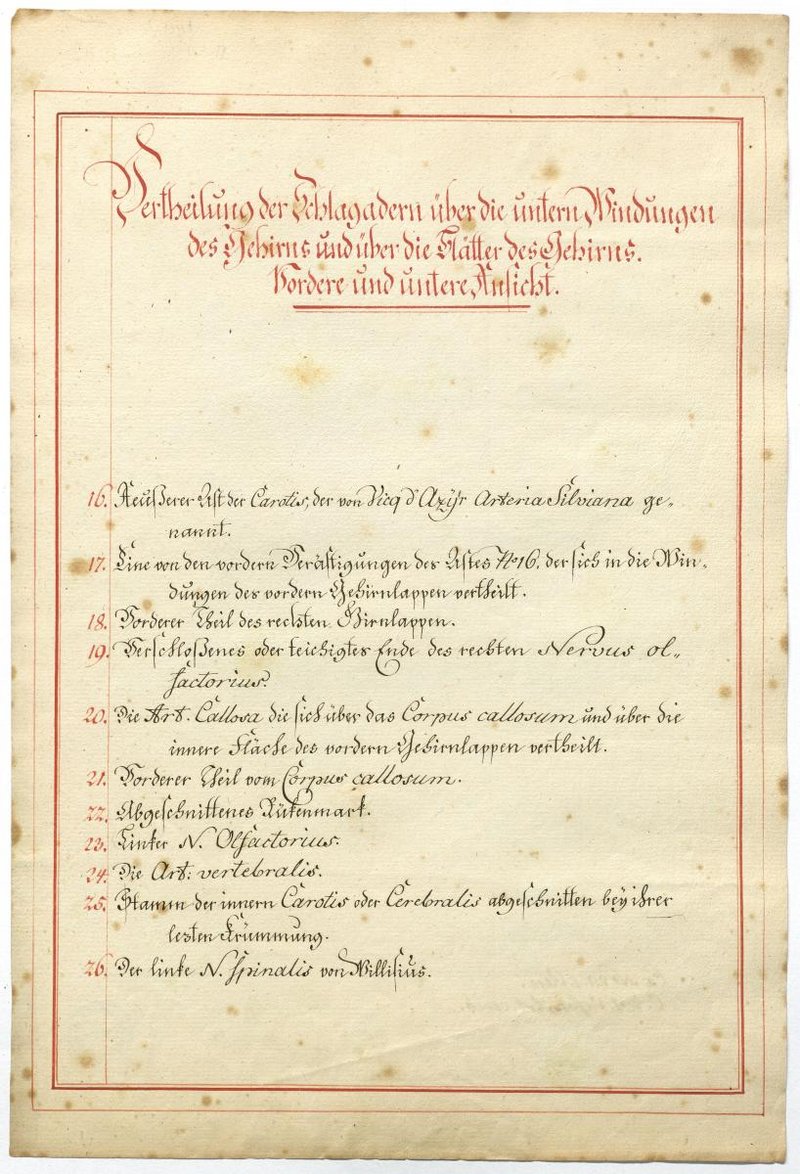 Vertheilung der Schlagadern über die untern Windungen
des Gehirns und über die Blätter des Gehirns.
Vordere und untere Ansicht.
16. Aeußerer Ast der Carotis, der von Vicq d'Azijr Arteria Silviana ge-
nannt.
17. Eine von den vordern Verästigungen des Astes No 16. der sich in die Win-
dungen des vordern Gehirnlappen vertheilt.
18. Vorderer Theil des rechten Hirnlappen.
19. Verschloßenes oder teichigtes Ende des rechten Nervus ol-
factorius.
20. Die Art. Callosa die sich über das Corpus callosum und über die
innere Fläche des vordern Gehirnlappen vertheilt.
21. Vorderer Theil vom Corpus callosum.
22. Abgeschnittenes Rükenmark.
23. Linker N. Olfactorius.
24. Die Art: vertebralis.
25. Stamm der innern Carotis oder Cerebralis abgeschnitten beÿ ihrer
lezten Krümmung.
26. Der linke N. spinalis von Willisius.